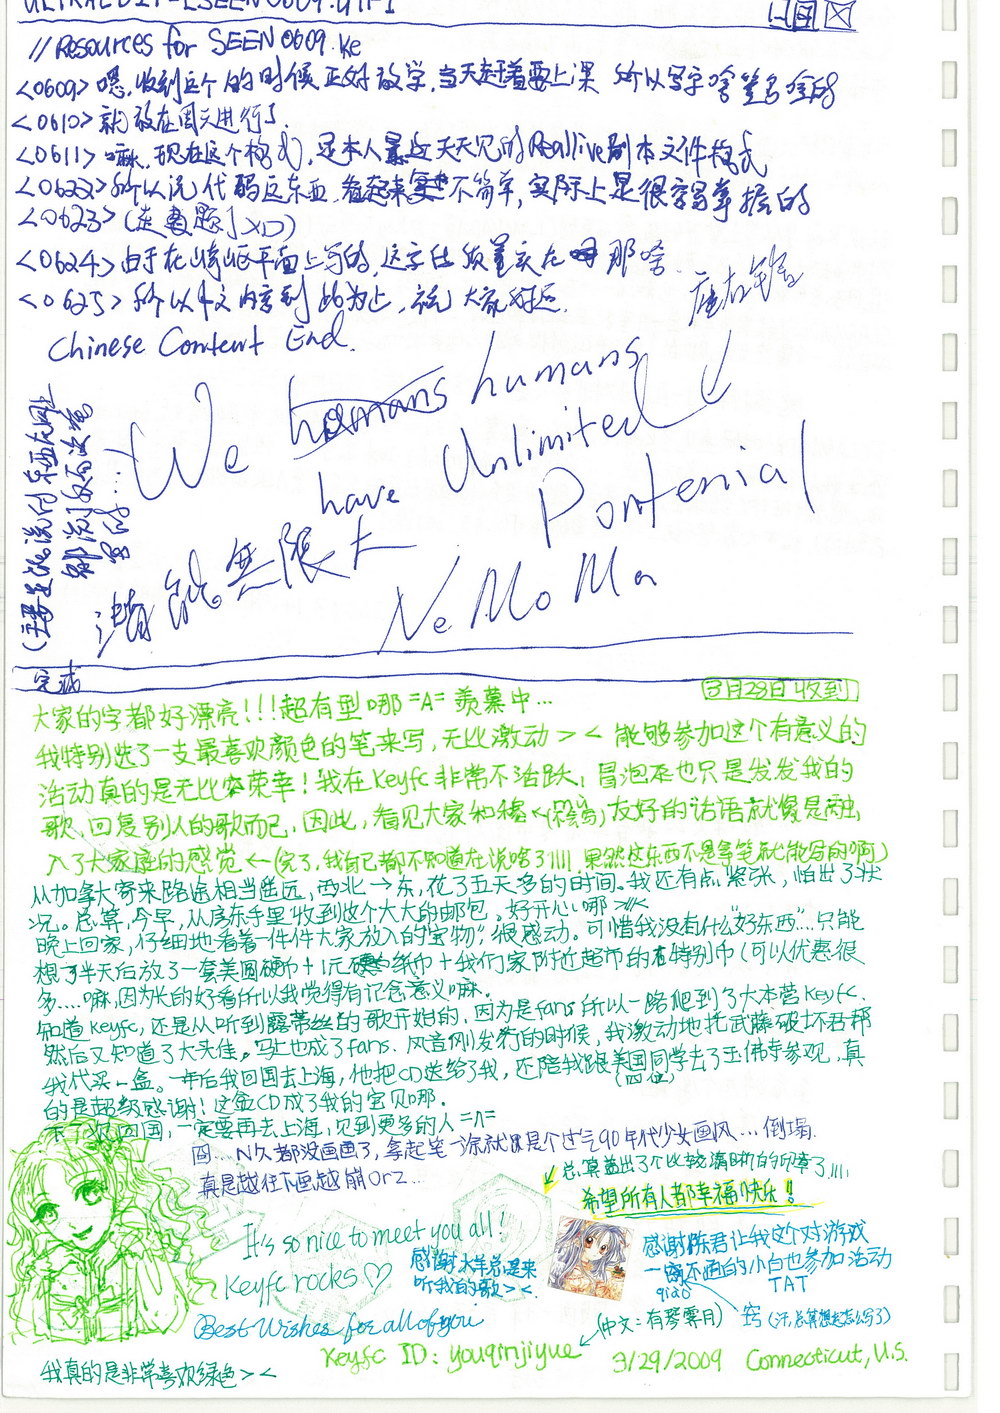 //Resources for SEEN0609.Ke
<0609> 嗯,收到这个的时候正好放学,当天赶着要上课 所以写字啥签名啥的
<0610> 就放在周六进行了.
<0611> 嘛,现在这个格式,是本人最近天天见的Reallive剧本文件格式
<0622> 所以说代码这东西,看起来 不简单,实际上是很容易掌握的
<0623> (走题了XD)
<0624> 由于在崎岖平面上写的,这字体质量实在 那啥.
<0625> 所以中文内容到此为止,祝大家好运.
Chinese Content End.
We humans
have Unlimited
Pontenial
潜能無限大
NeMoMa
完成
3月28日收到
大家的字都好漂亮!!!超有型哪=A= 羡慕中…
我特别选了一支最喜欢颜色的笔来写,无比激动> < 能够参加这个有意义的
活动真的是无比荣幸!我在Keyfc非常不活跃,冒泡也只是发发我的
歌,回复别人的歌而已,因此,看见大家和穆←(mu)(不会写)友好的话语就像是融
入了大家庭的感觉←(完了,我自己都不知道在说啥了|||| 果然这东西不是拿笔就能写的啊)
从加拿大寄来路途相当遥远,西北→东,花了五天多的时间.我还有点紧张,怕出了状
况。总算,今早,从房东手里收到这个大大的邮包。好开心哪>///<
晚上回家,仔细地看着一件件大家放入的"宝物",很感动。可惜我没有什么"好东西"....只能
想了半天后放了一套美国硬币+1元纸币+我们家附近超市的特别币(可以优惠很
多....嘛,因为长的好看所以我觉得有记念意义嘛.
知道Keyfc,还是从听到露蒂丝的歌开始的,因为是fans所以一路爬到了大本营Keyfc.
然后又知道了大头佳。马上也成了fans.风音刚发行的时候,我激动地托武藤破坏君帮
我代买一盒。一年后我回国去上海,他把CD送给了我,还陪我跟美国同学(四位)去了玉佛寺参观,真
的是超级感谢!这盒CD成了我的宝贝哪.
下次回国,一定要再去上海,见到更多的人=∩=
囧...N久都没画画了,拿起笔一涂就是个过气90年代少女画风...倒塌.
真是越往下画越崩orz...
总算盖出了个比较清晰的印章了||||
希望所有人都幸福快乐!
It's so nice to meet you all!
Keyfc rocks♡
感谢水羊总是来
听我的歌> <.
感谢陈君让我这个对游戏
一窍不通的小白也参加活动
qiao
TAT
窍(汗,总算想起怎么写了)
Best Wishes for all of you
(中文:有琴霁月)
Keyfc ID: youqinjiyue
3/29/2009 Connecticut, U.S.
我真的是非常喜欢绿色> <